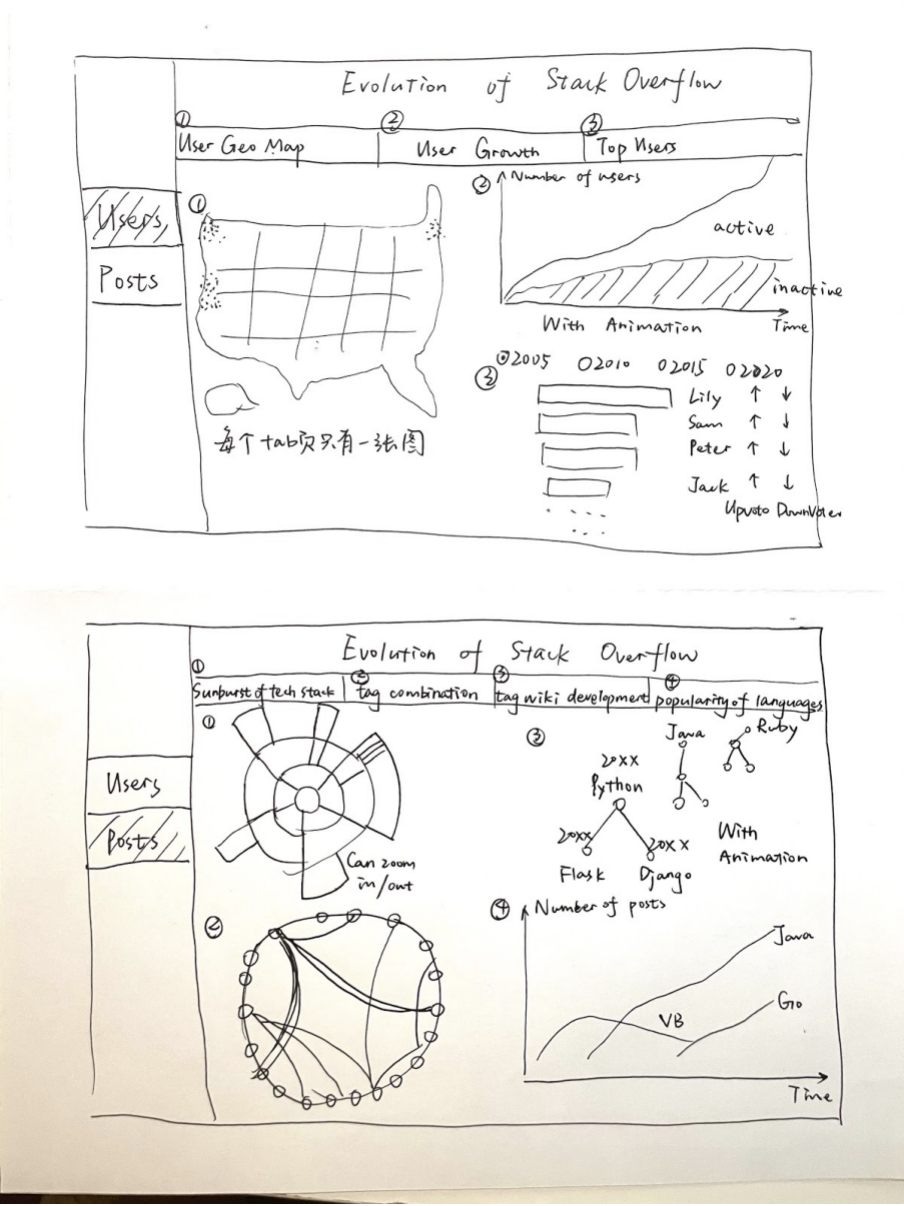 Evolution of Stack Overflow
① ② ③
User Geo Map User Growth Top Users
Users
Posts
①
② Number of users
active
inactive
With Animation Time
每个tab页只有一张图
③
2005 2010 2015 2020
Lily ↑ ↓
Sam ↑ ↓
Peter ↑ ↓
Jack ↑ ↓
Upvote DownVoter
Evolution of Stack Overflow
① ② ③ ④
Sunburst of tech stack tag combination tag wiki development popularity of languages
Users
Posts
①
Can zoom
in/out
②
③
Java Ruby
20XX
Python
20XX 20XX
Flask Django
With
Animation
④ Number of posts
Java
Go
VB
Time